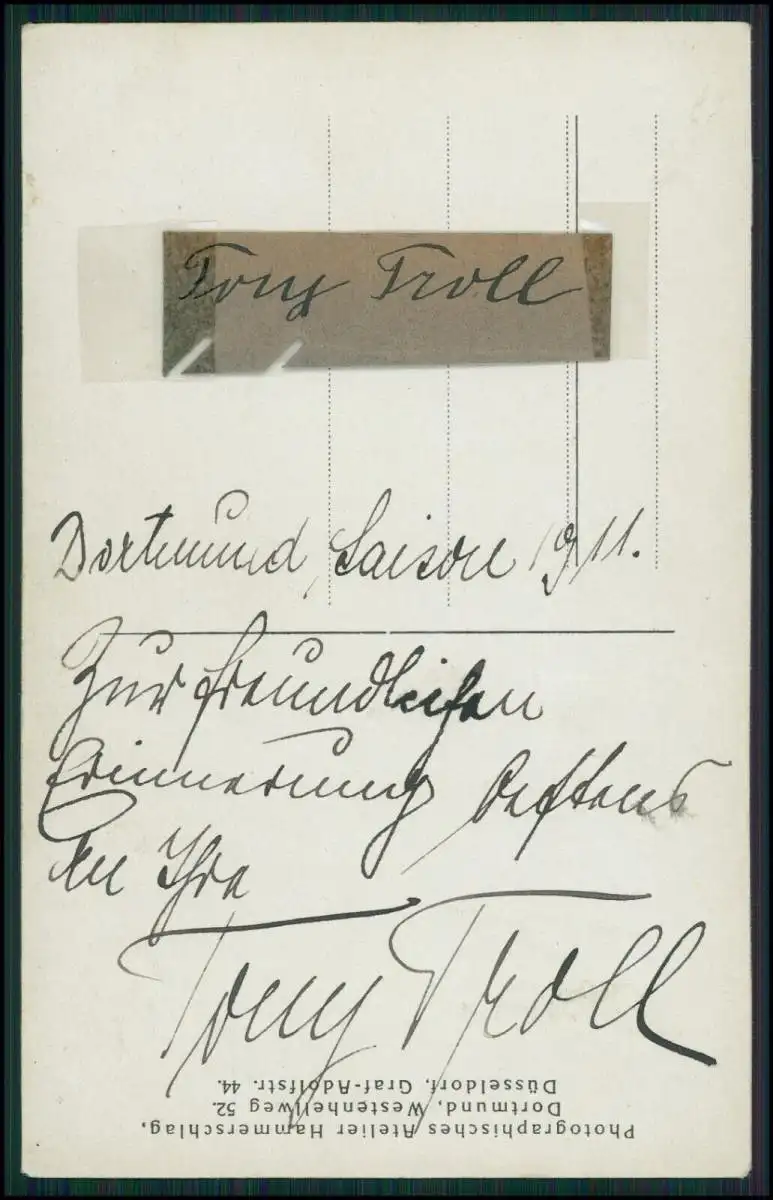 Tony Troll
Dortmund, Saison 1911.
Zur freundlichen
Erinnerung öftens
an Ihre
Tony Troll
Photographisches Atelier Hammerschlag,
Dortmund, Westenhellweg 52.
Düsseldorf, Graf-Adolfstr. 44.